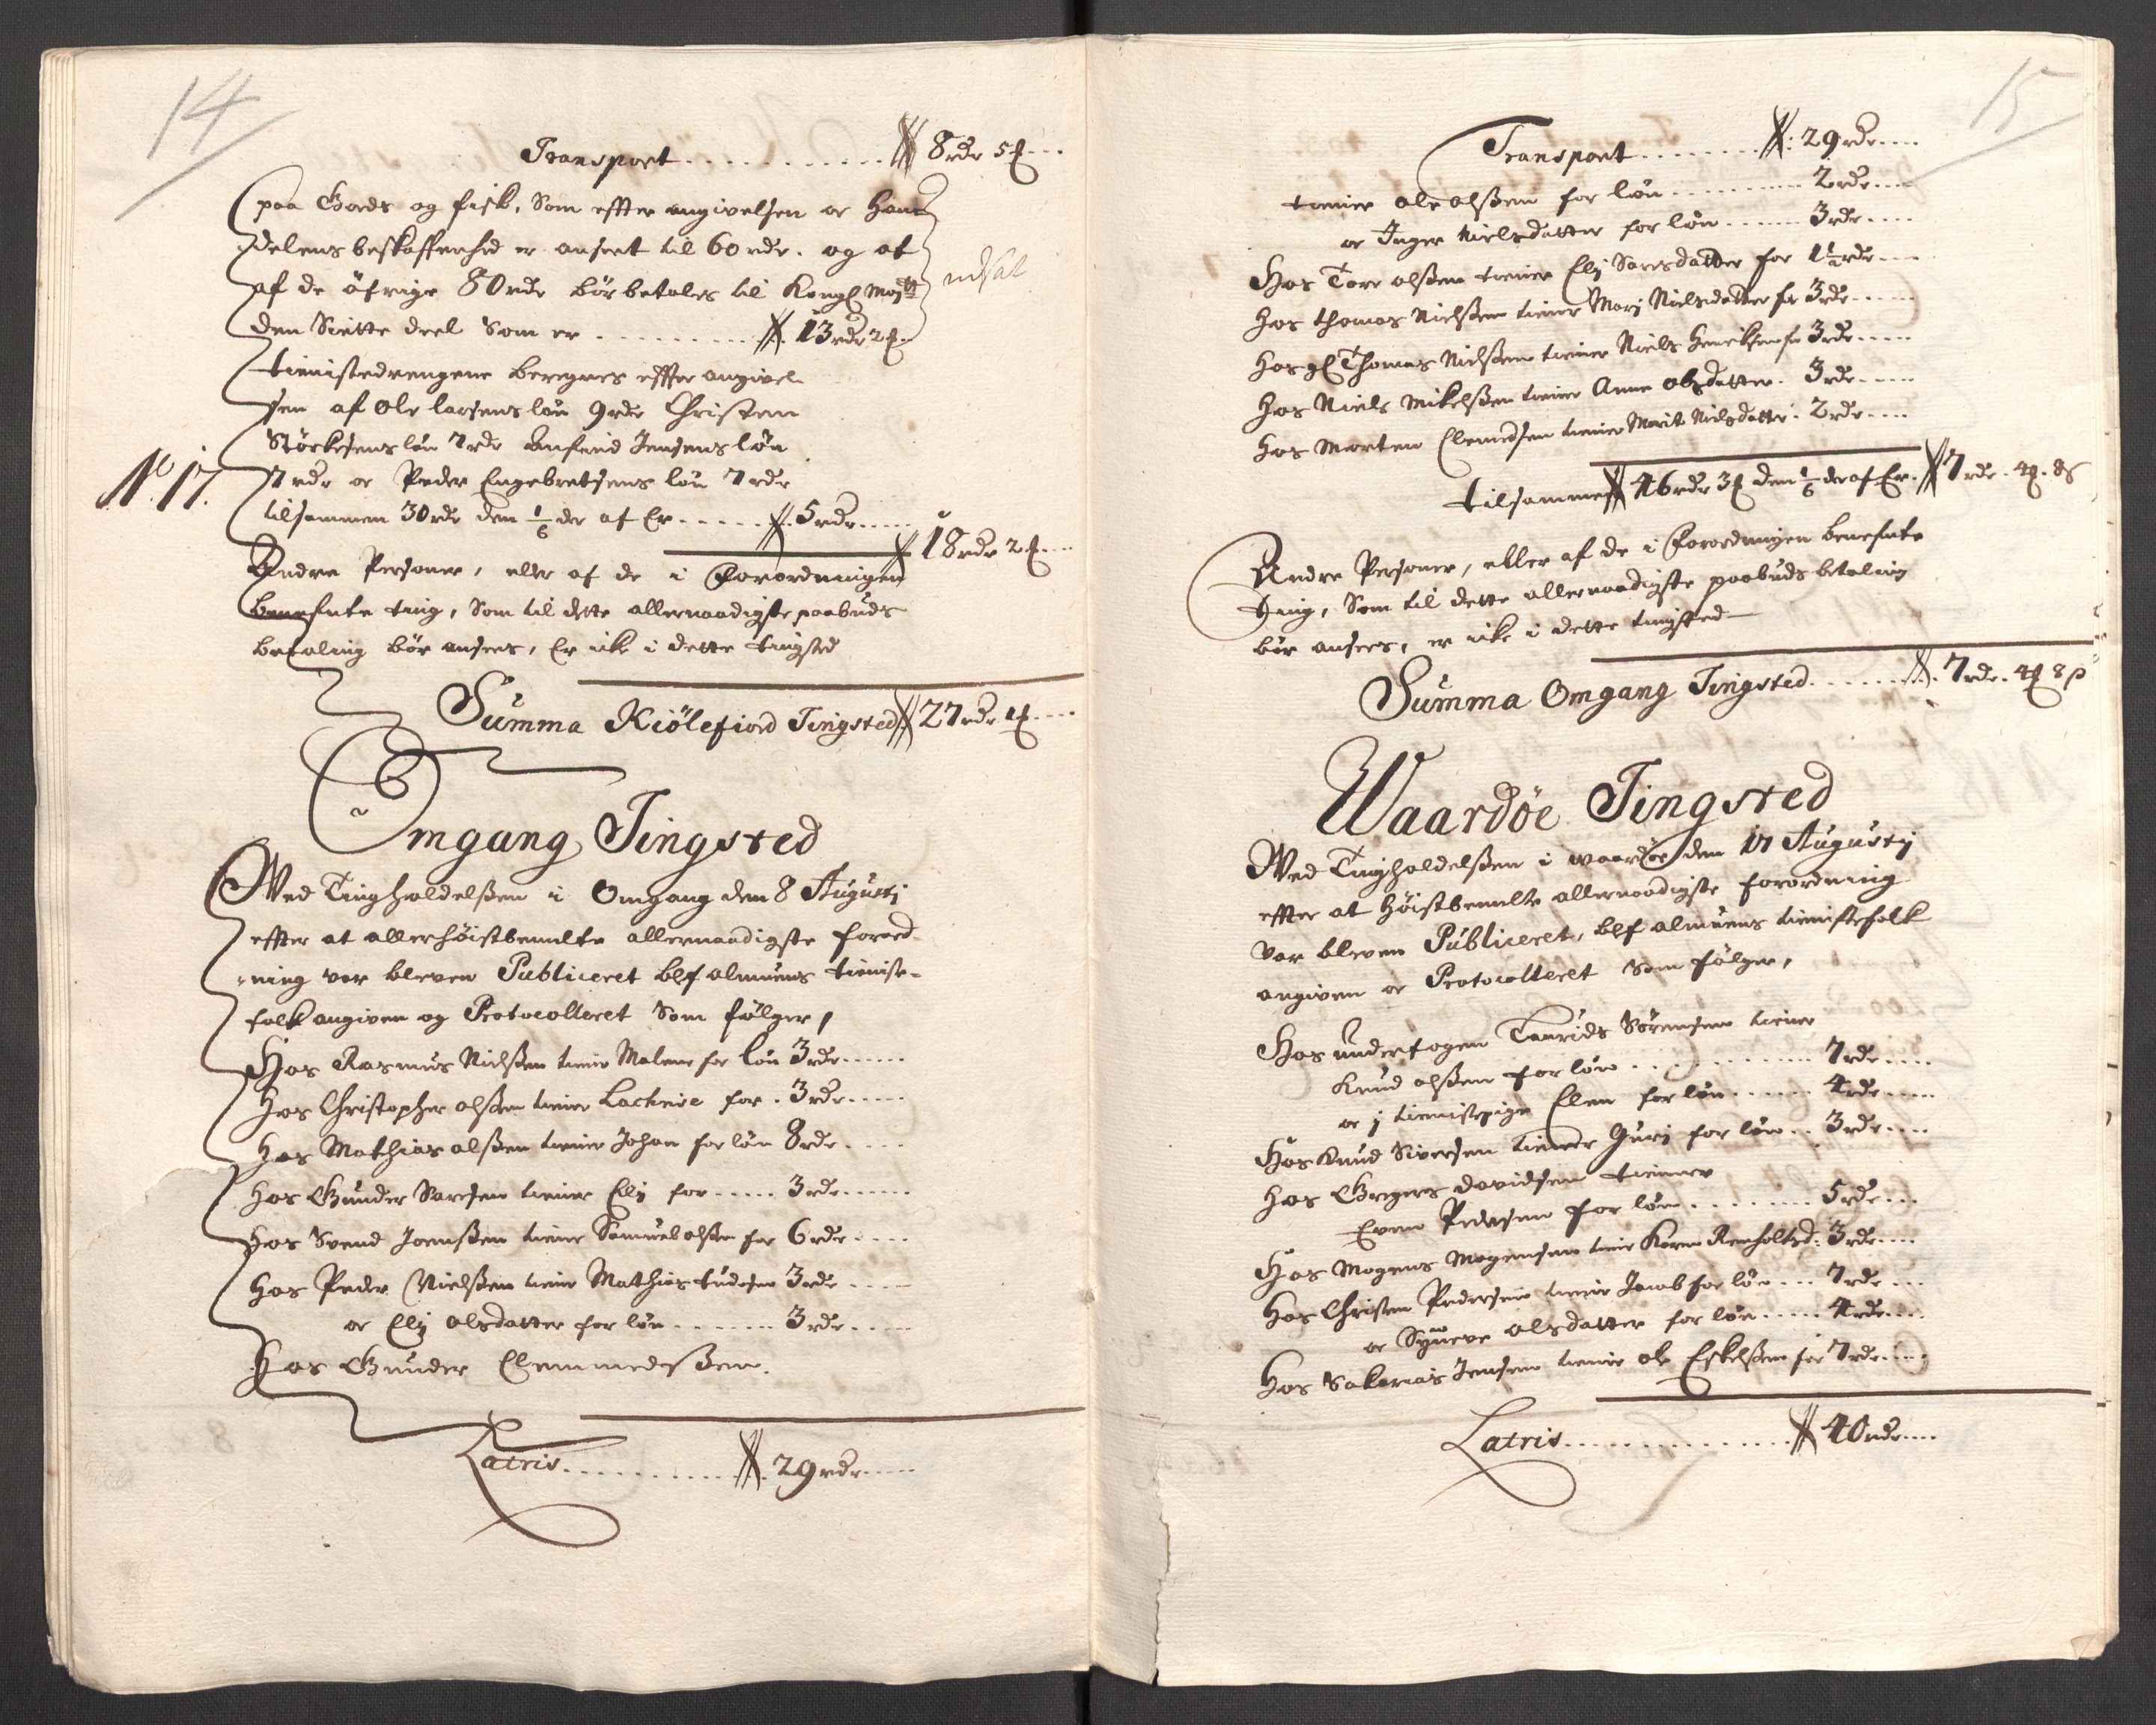 14
Transport . . . . . . . . . . . 8 rdr 5 ſ . . .
paa Gods og fisk, Som effter angivelsen or Hans
delens beskaffenhed er anseet til 60 rdr. og at
af de öfrige 80 rdr bör betales til Kongl May tt
udsat
den Siette deel Som er . . . . . . . . . 13 rdr 2 ſ.
tienistedrengene beregnes effter angivel
sen af Ole larsens lön 9 rdr Christen
Störkesens lön 7 rdr Jensens lön
No. 17.
7 rdr or Peder Engebretsens lön 7 rdr
tilsammen 30 rdr den 1/6 der af Er . . . . . 5 rdr . . . .
18 rdr 2 ſ . . .
Andre Personer, eller af de i Forordningen
benefnte ting, Som til dette allernaadigste paabuds
betaling bör ansees, Er icke i dette tingsted
Summa Kiölefiord Tingsted 27 rdr 1 ſ . . . .
Omgang Tingsted
Wed Tingholdelßen i Omgang den 8 Augusti
effter at allerhöistbemelte allernaadigste forord-
ning var bleven Publiceret blf almuens tieniste-
folk angiven og Protocolleret Som fölger,
Hos Rasmus Nielßen tiener Malene for lön 3 rdr . . . . .
Hos Christopher olßen tiener for . 3 rdr . . . . .
Hos Mathias olßen tiener Johan for lön 8 rdr . . . .
Hos Gunder Sarsen tiener Elj for . . . . . 3 rdr . . . . .
Hos Svend Joenßen tiener Samuel olßen for 6 rdr . . . .
Hos Peder Nielßen tiener Mathias 3 rdr . . . .
or Elj olsdatter for lön . . . . . . 3 rdr . . . .
Hos Gunder Clemmedßen.
Latris . . . . . . . . . . . 29 rdr . . . .
15
Transport . . . . . . . . 29 rdr . . . .
tiener ole olßen for lön . . . . . . . . . 2 rdr . . .
or Inger Nielsdatter for lön . . . . . . 3 rdr . . . .
Hos Tore olßen tiener Elj Sarsdatter for 1 1/2 rdr . . .
Hos thomas Nielßen tiener Marj Nielsdatter for 3 rdr . . . .
Hos gl Thomas Nielßen tiener Niels Henriksen for 3 rdr . . . .
Hos Niels Mikelßen tiener Anne olsdatter . 3 rdr . . . .
Hos Morten Clemedsen tiener Marit Nielsdatter . 2 rdr . . . .
tilsammen 46 rdr 3 ſ den 1/6 der af Er . 7 rdr . 4 ſ . 8 ß
Andre Personer, eller af de i Forordningen benefnte
ting, Som til dette allernaadigste paabuds betaling
bör ansees, er icke i dette tingsted
Summa Omgang Tingsted . . . . . . . 7 rdr . 4 ſ 8 ß
Waardöe Tingsted
Wed Tingholdelßen i waardöe den 17 Augustj
effter at höistbemelte allernaadigste forordning
var bleven Publiceret, blf almuens tienistefolk
angiven or Protocolleret Som fölger,
Hos underfogen Taurids Sörensen tiener
Knud olßen for lön . . . . . . . . . . 7 rdr . . . .
or j tienistepige Elen for lön . . . . . 4 rdr . . . .
Hos Knud Siversen tiener Gurj for lön . . 3 rdr . . . .
Hos Gregers Davidsen tiener
Even Pedersen for lön . . . . . . . 5 rdr . . .
Hos Mogens Mogensen tiener Karen Renholtsd: 3 rdr . . . .
Hos Christen Pedersen tiener Jacob for lön . . . 7 rdr . . .
or Synneve olsdatter for lön . . . . . 4 rdr . . . .
Hos Sakarias Jensen tiener ole Eskelßen for 7 rdr . . . .
Latris . . . . . . . . . . . . . 40 rdr . . . .